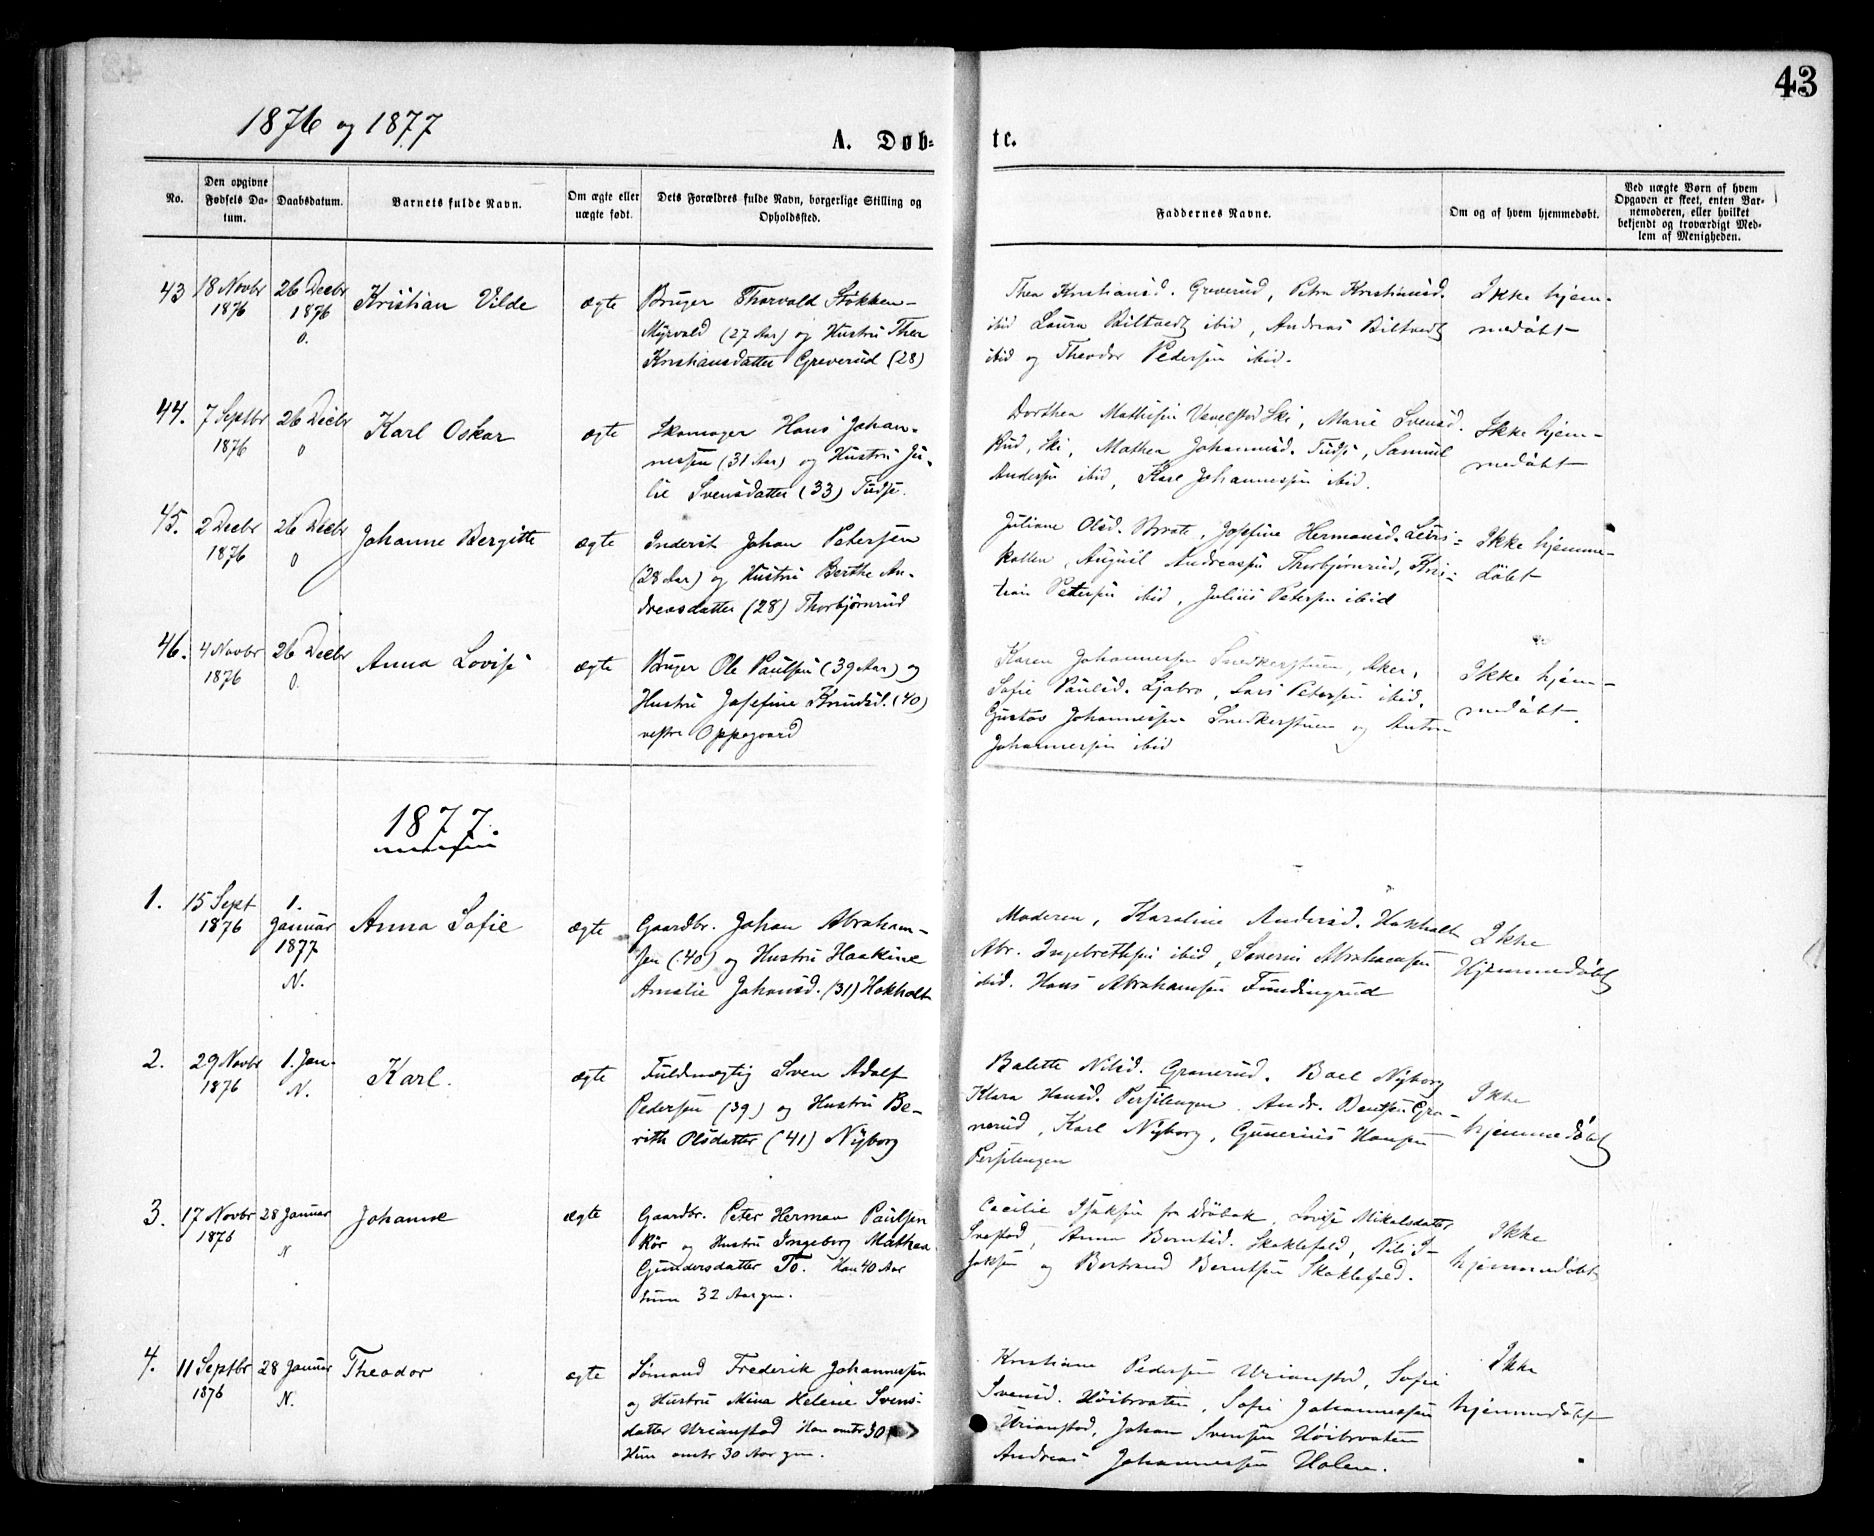 43
1876 og 1877
A. Døb-
te.
No.
Den opgivne
Fødsels Da-
tum.
Daabsdatum.
Barnets fulde Navn.
Om ægte eller
uægte født.
Dets Forældres fulde Navn, borgerlige Stilling og
Opholdssted.
Faddernes Navne.
Om og af hvem hjemmedøbt.
Ved uægte Børn af hvem
Opgaven er skeet, enten Bar-
nemoderen, eller hvilket
bekjendt og troværdigt Med-
lem af Menigheden.
43
18 Novbr
1876
26 Decbr
1876
O.
Kristian Vilde
ægte
Bruger Thorvald Stökken-
Myrvold (27 Aar) og Hustru Thea
Kristiansdatter Greverud (28)
Thea Kristiansd. Greverud, Petra Kristiansd.
ibid Laura Biltvedt ibid, Andreas Biltvedt
ibid og Theodor Pedersen ibid.
Ikke hjem-
medøbt
44.
7 Septbr
1876
26 Decbr
O
Karl Oskar
ægte
Skomager Hans Johan-
nessen (31 Aar) og Hustru Ju-
lie Svensdatter (33) Tudse.
Dorthea Mathisen Vevelstad Ski, Marie Svensd.
Rud, Ski, Mathea Johannesd. Tudse, Samuel
Andersen ibid, Karl Johannessen ibid.
Ikke hjem-
medøbt
45.
2 Decbr
1876
26 Decbr
O
Johanne Bergitte
ægte
Inderst Johan Petersen
(28 Aar) og Hustru Berthe An-
dreasdatter (28) Thorbjørnrud
Juliane Olsd. Braate, Josefine Hermansd. Leiris-
kollen, August Andreassen Thorbjørnrud, Kris-
tian Petersen ibid, Julius Petersen ibid
Ikke hjemme-
døbt
46.
4 Novbr
1876
26 Decbr
O.
Anna Lovise
ægte
Bruger Ole Paulsen (39 Aar) og
Hustru Josefine Knudsd. (40)
vestre Oppegaard
Karen Johannessen Snedkerstuen, Aker,
Sofie Paulsd. Ljabro, Lars Petersen ibid,
Gustav Johannessen Snedkerstuen og Anton
Johannessen ibid
Ikke hjem-
medøbt.
1877.
1.
15 Sept
1876
1.
Januar
1877
N.
Anna Sofie
ægte
Gaardbr. Johan Abraham-
sen (40) og Hustru Haakine
Amalie Johansd. (31) Hakholt
Moderen, Karoline Andersd. Hakholt
Abr. Ingebrethsen ibid, Severin Abrahamsen
ibid. Hans Abrahamsen Fundingrud
Ikke
Hjemmedøbt
2.
29 Novbr
1876
1. Jan-
N.
Karl.
ægte
Fuldmægtig Sven Adolf
Pedersen (39) og Hustru Be-
rith Olsdatter (41) Nyborg
Balette Nilsd. Granerud. Boel Nyborg
Klara Hansd. Persilengen. Andr. Bentsen Gra-
nerud, Karl Nyborg, Gunerius Hansen
Persilengen
Ikke
hjemmedøbt
3.
17 Novbr
1876
28 Januar
N
Johanne
ægte
Gaardbr. Peter Herman Paulsen
Rör og Hustru Ingeborg Mathea
Gundersdatter To. Han 40 Aar
hun 32 Aar gm.
Cecilie Isaksen fra Drøbak, Lovise Mikalsdatter
Ivestad, Anna Berntsd. Skoklefald, Nils I-
saksen og Bertrand Berntsen Skoklefald.
Ikke
hjemmedøbt
4.
11 Septbr
1876
28 Januar
N.
Theodor
ægte
Sømand Frederik Johannessen
og Hustru Mina Helene Svens-
datter Urianstad Han omtr 30
Hun omtr 30 Aar gm.
Kristiane Pedersen Urianstad, Sofie
Svensd. Høibraaten, Sofie Johannessen
Urianstad, Johan Svensen Høibraaten
Andreas Johannessen Holen.
Ikke
hjemmedøbt